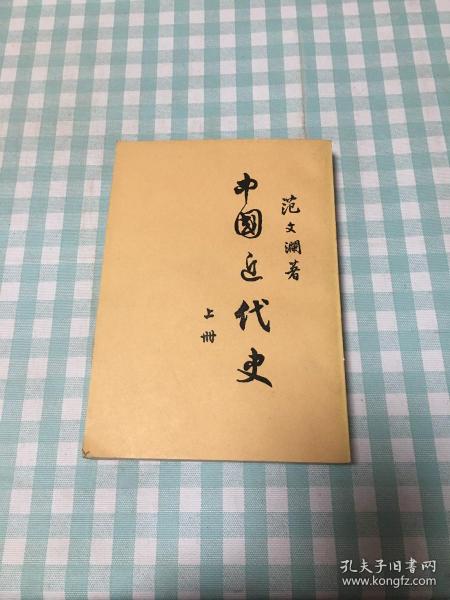 范文澜著
中國近代史
上冊
孔夫子旧书网
www.kongfz.com